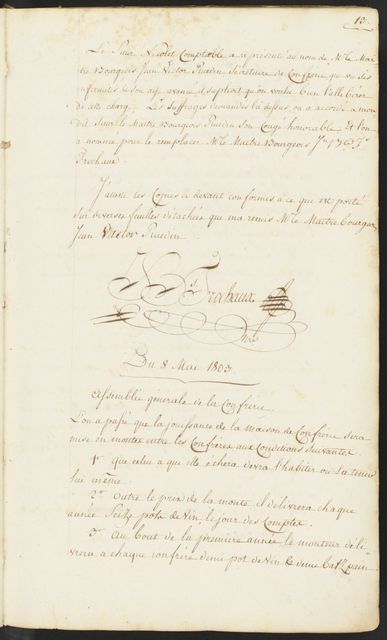 13.
Le Sieur Nicolet Comptable a représenté au nom de Mr. le Mai-
tre Bourgeois Jean Victor Ruedin Sécrétaire de Confrérie, que vu ses
infirmités & son age avancé, il sephoit qu'on voulut bien le libérer
de cette charge. Les suffrages demandés là dessus, on a accordé à mon
dit Sieur le Maitre Bourgeois Ruedin son Congé honorable, Et l'on
a nommé pour le remplacer Mr. le Maitre Bourgeois
Frochaux
J'atteste les Copies ci devant conformes à ce qui est porté
sur diverses feuilles détachées que m'a remis Mr. le Maitre Bourgeois
Jean Victor Ruedin.
Frochaux
Du 8 Mai 1803.
Assemblée générale de la Confrérie
L'on a passé que la jouissance de la maison de Confrérie sera
mise en montes entre les Confrères aux Conditions suivantes.
1º que celui à qui elle échera devra l'habiter ou la tenir
lui même
2º Outre le prix de la monte il délivrera chaque
année Seize pots de Vin, le jour des Comptes.
3º Au bout de la première année le monteur déli-
vrera à chaque confrère demi pot de Vin & demi Batz pain